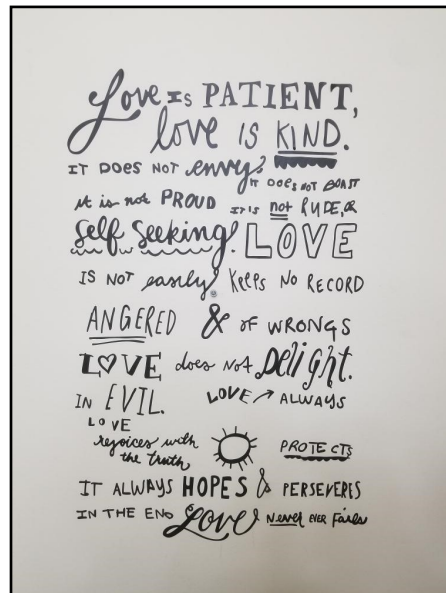 Love Is PATIENT,
love IS KIND.
IT DOES NOT envy. IT DOES NOT BOAST
it is not PROUD IT IS not RUDE, OR
Self Seeking. LOVE
IS NOT easily KEEPS NO RECORD
ANGERED & OF WRONGS
LOVE does NOT Delight.
IN EVIL. LOVE ALWAYS
LOVE
rejoices with
the truth PROTECTS
IT ALWAYS HOPES & PERSEVERES
IN THE END Love Never EVER Fails